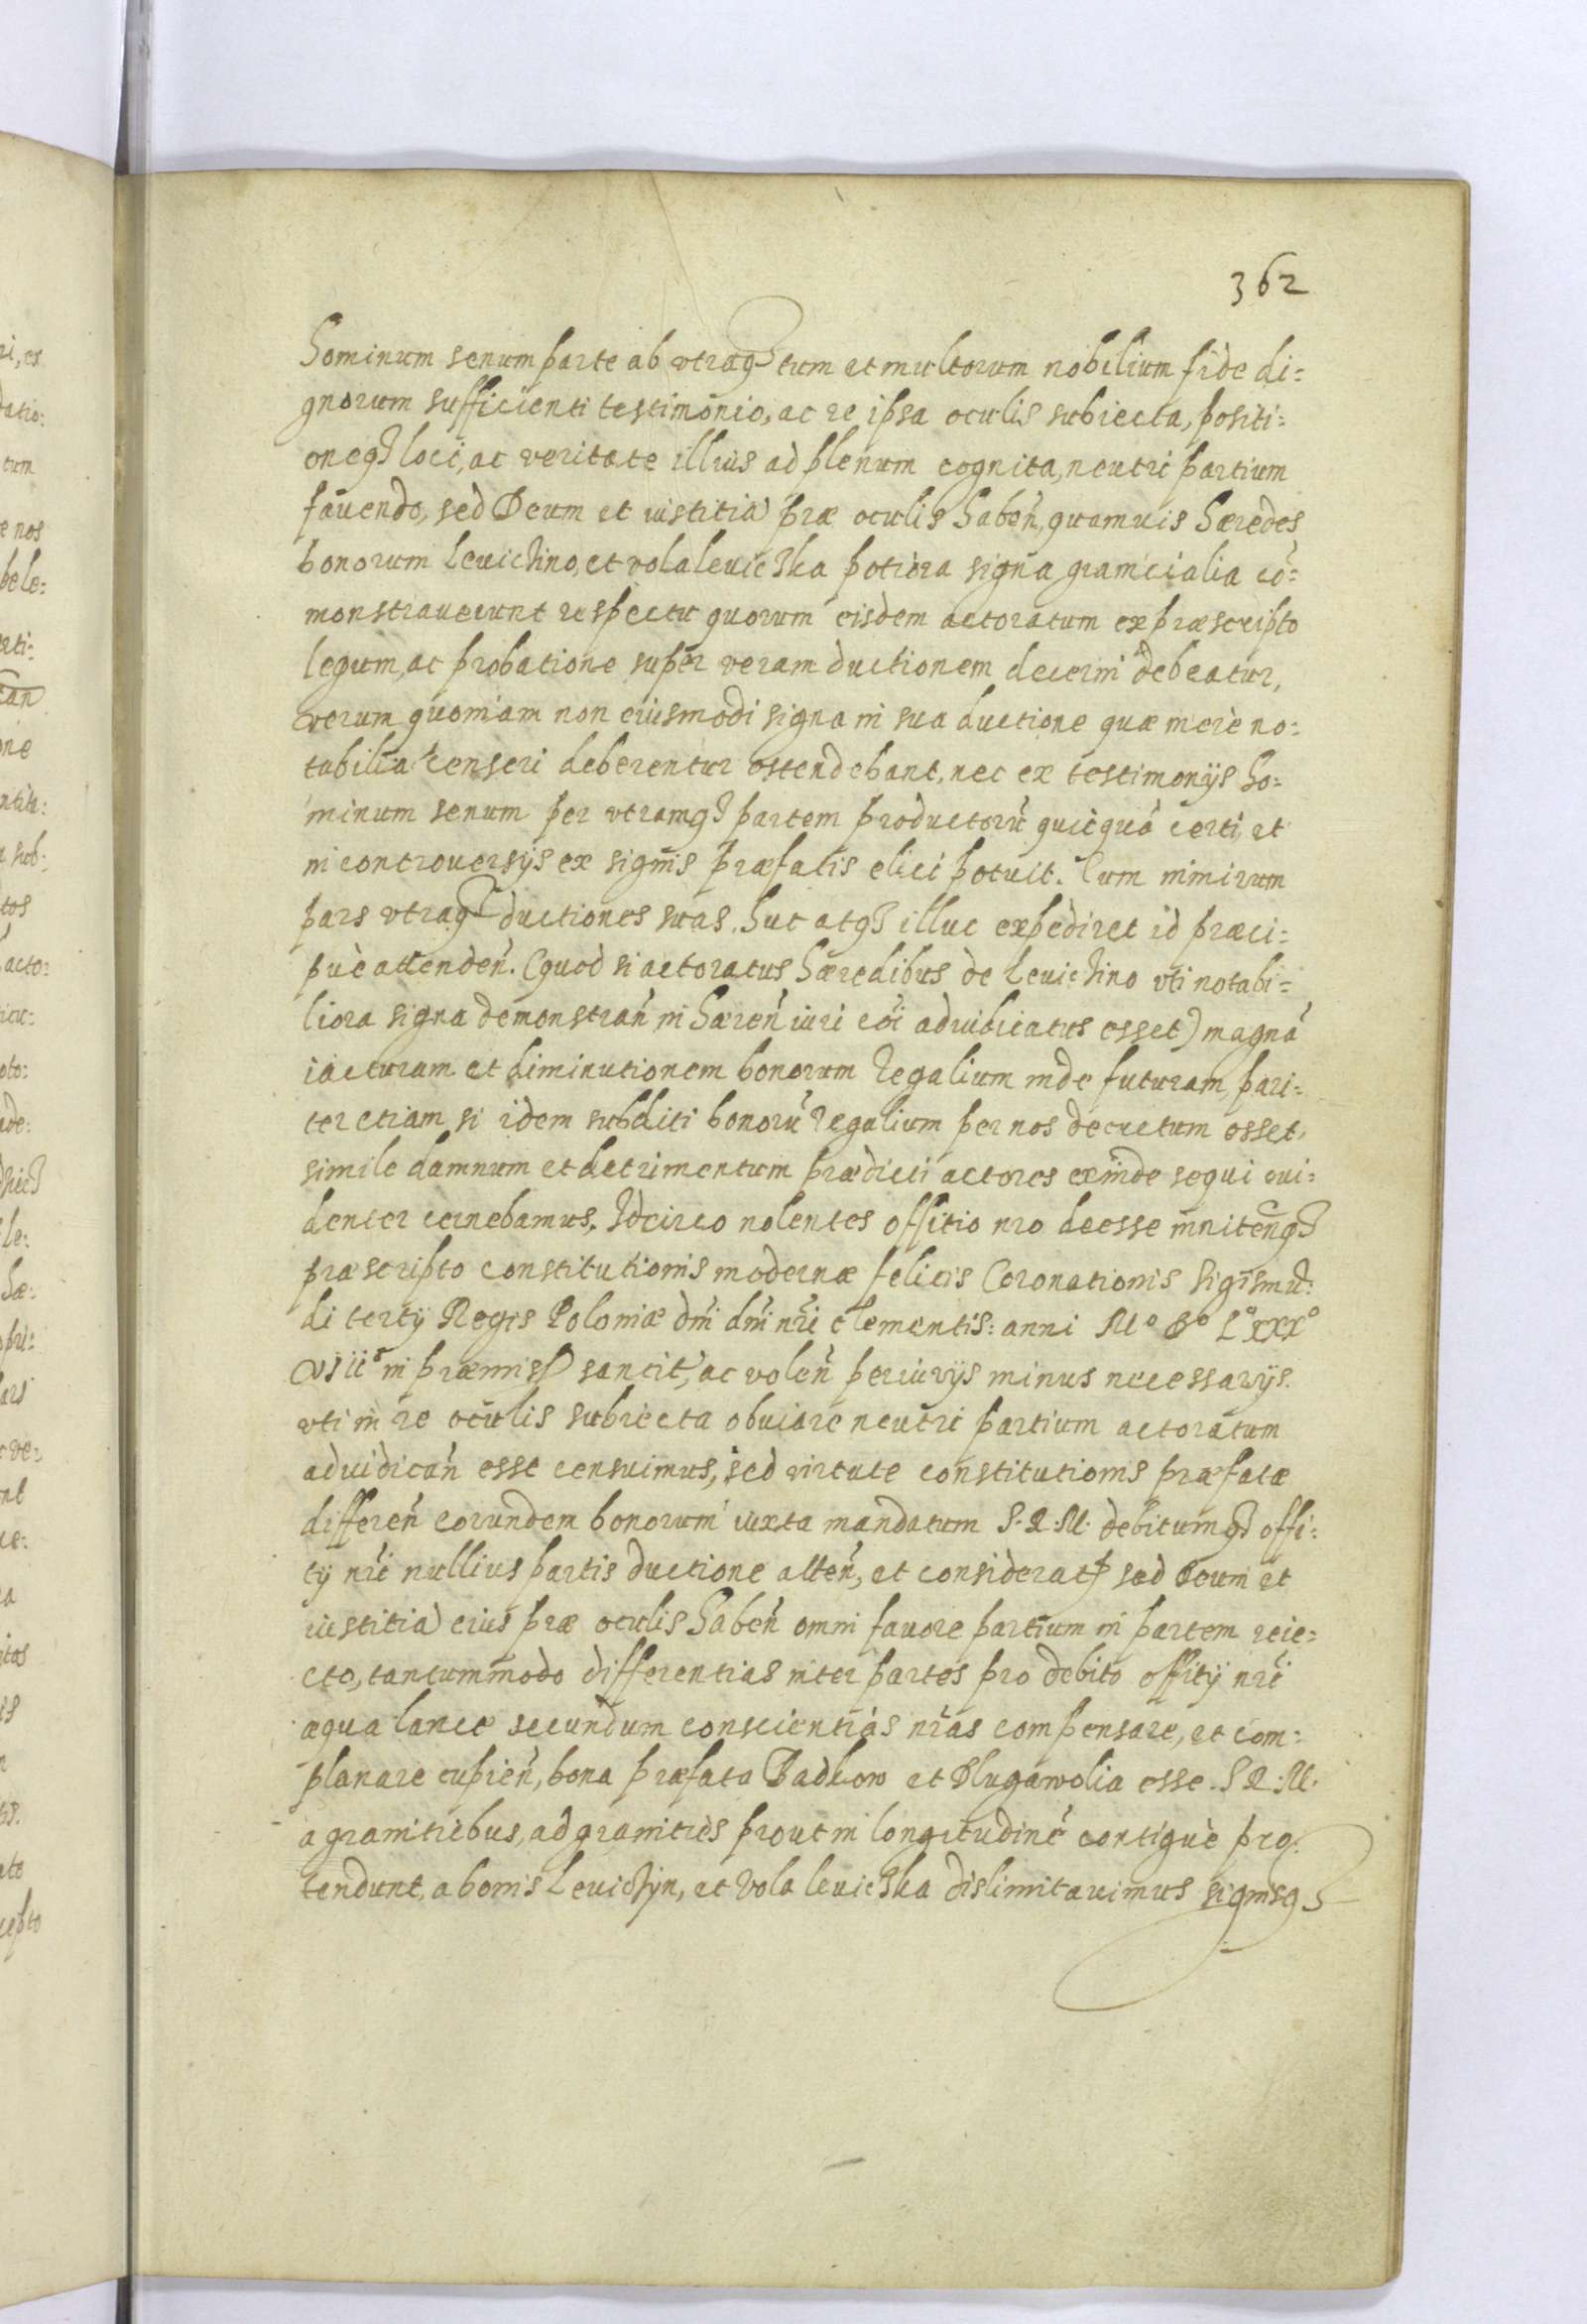 362
hominum senum parte ab vtraq3 tum et multorum nobilium fide di=
gnorum sufficienti testimonio, ac re ipsa oculis subiecta, positi=
oneq3 loci, ac veritate illius ad plenum cognita, neutri partium
fauendo, sed Deum et iustitiã præ oculis habeñ, quamuis hæredes
bonorum Leuichino, et vola leuichka potiora signa granicialia cõ=
monstrauerunt respectu quorum eisdem actoratum ex præscripto
legum, ac probatione super veram ductionem decerni debeatur,
verum quoniam non eiusmodi signa in sua ductione quæ merè no=
tabilia censeri deberentur ostendebant, nec ex testimonijs ho=
minum senum per vtramq3 partem productorũ quicquã certi, et
in controuersijs ex signis præfatis elici potuit. Cum nimirum
pars vtraq3 ductiones suas huc atq3 illuc expediret id præci=
puè attendeñ. (quod si actoratus hæredibus de Leuichino vti notabi=
liora signa demonstrañ in hæreñ iuri cõi adiudicatus esset) magnã
iacturam et diminutionem bonorum Regalium inde futuram, pari=
ter etiam si idem subditi bonorũ Regalium per nos decretum esset,
simile damnum et detrimentum prædicti actores exinde sequi eui=
denter cernebamus. Idcirco nolentes offitio nro deesse innitenq3
præscripto constitutionis modernæ felicis Coronationis Sigismũ=
di tertij Regis Poloniæ dñi dñi nři clementis: anni Mº Dº Lºxxxº
viiº in præmiss sancit, ac voleñ periurijs minus necessarijs.
vti in re oculis subiecta obuiare neutri partium actoratum
adiudicañ esse censuimus, sed virtute constitutionis præfatæ
differeñ eorundem bonorum iuxta mandatum S. R. M. debitumq3 offi=
tij nři nullius partis ductione atteñ, et considerat sed Deum et
iustitiã eius præ oculis habeñ omni fauore partium in partem reie=
cto, tantummodo differentias inter partes pro debito offitij nři
æqua lance secundum conscientias nřas compensare, et com=
planare cupieñ, bona præfata Badkow et Dlugawolia esse S R: M.
a granitiebus, ad granities prout in longitudinẽ contiguè pro=
tendunt, a bonis Leuichyn, et Vola leuichka dislimitauimus signisq3